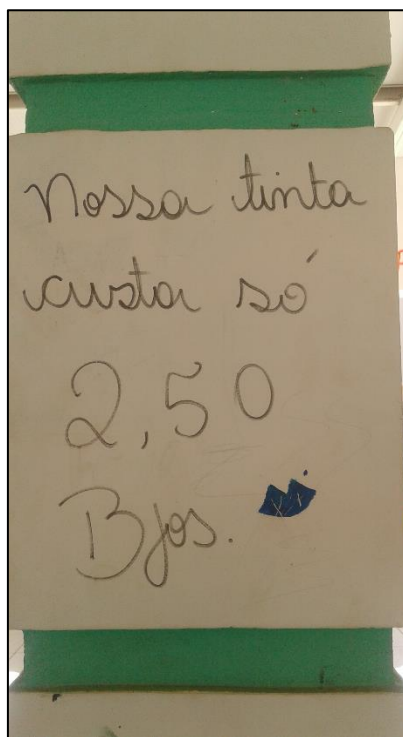 Nossa tinta
custa só
2,50
Bjos.